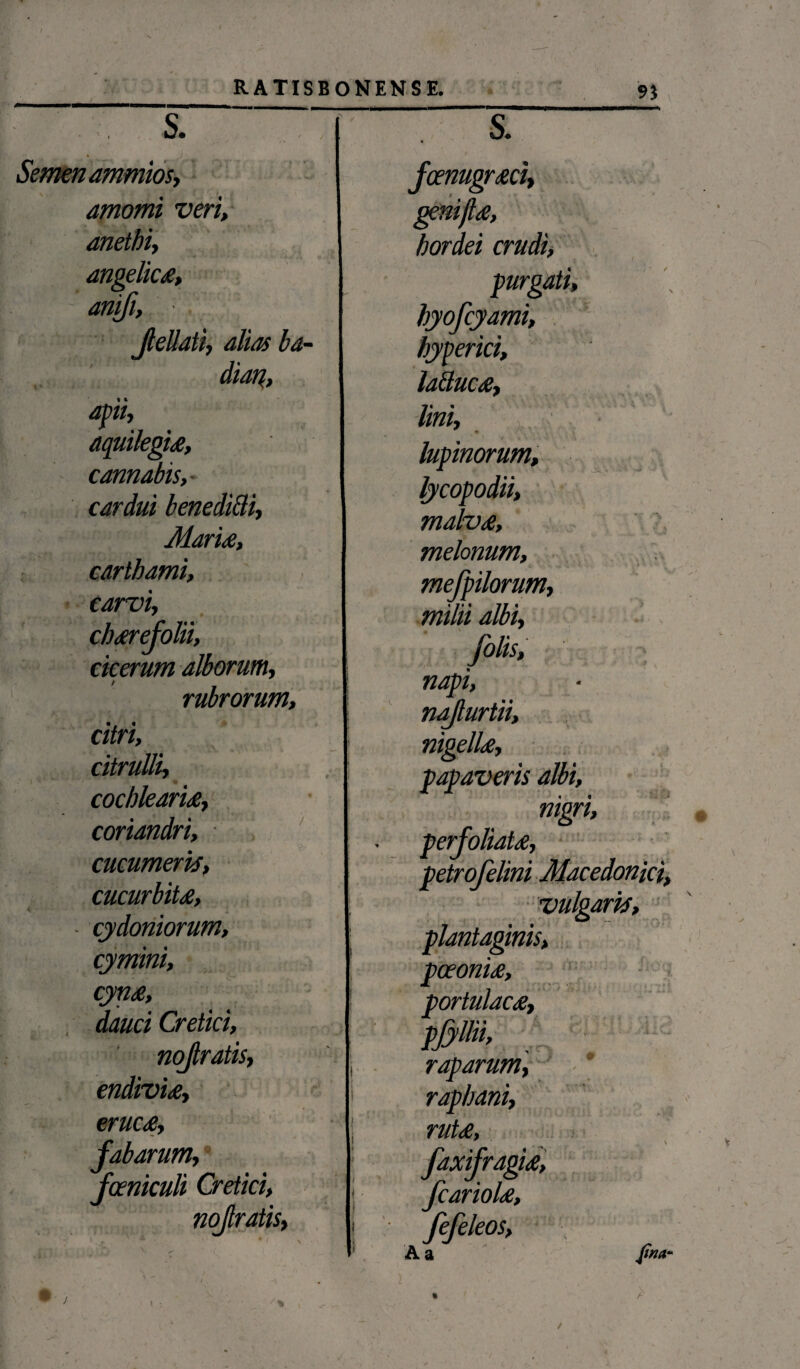 RATISBONENSE. 93
S.
Semen ammios,
amomi veri,
anethi,
angelicæ,
aniſi,
ſtellati, alias ba-
dian,
apii,
aquilegiæ,
cannabis,
cardui benedicti,
Mariæ,
carthami,
carvi,
chærefolii,
cicerum alborum,
rubrorum,
citri,
citrulli,
cochleariæ,
coriandri,
cucumeris,
cucurbitæ,
cydoniorum,
cymini,
cynæ,
dauci Cretici,
noſtratis,
endiviæ,
erucæ,
fabarum,
fœniculi Cretici,
noſtratis,
S.
fœnugræci,
geniſtæ,
hordei crudi,
purgati,
hyoſcyami,
hyperici,
lactucæ,
lini,
lupinorum,
lycopodii,
malvæ,
melonum,
meſpilorum,
milii albi,
ſolis,
napi,
naſturtii,
nigellæ,
papaveris albi,
nigri,
perfoliatæ,
petroſelini Macedonici,
vulgaris,
plantaginis,
pœoniæ,
portulacæ,
pſyllii,
raparum,
raphani,
rutæ,
ſaxifragiæ,
ſcariolæ,
ſeſeleos,
A a ſina-